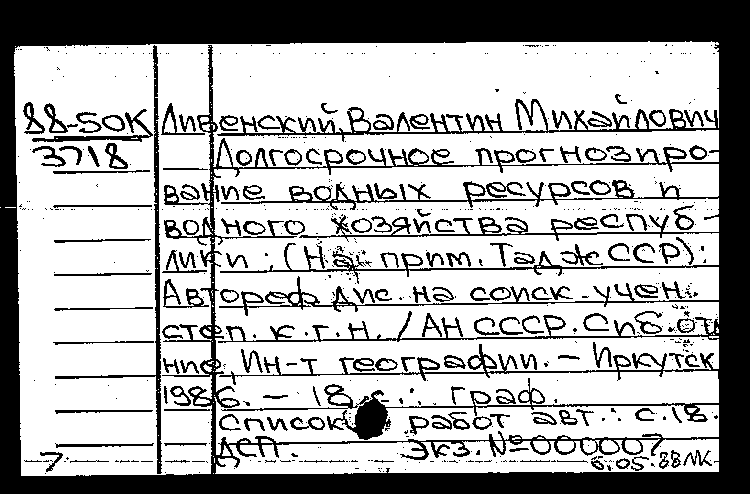 88-50К Ливенский, Валентин Михайлович
3718 Долгосрочное прогнозиро-
вание водных ресурсов и
водного хозяйства респуб-
лики : (На прим. Тадж ССР) :
Автореф. дис. на соиск. учен.
степ. к.г.н. / АН СССР. Сиб. отд
ние, Ин-т географии. – Иркутск
1986. – 18 с. : граф.
Список работ авт. : с. 18.
ДСП. Экз. №000007
7 6.05.88